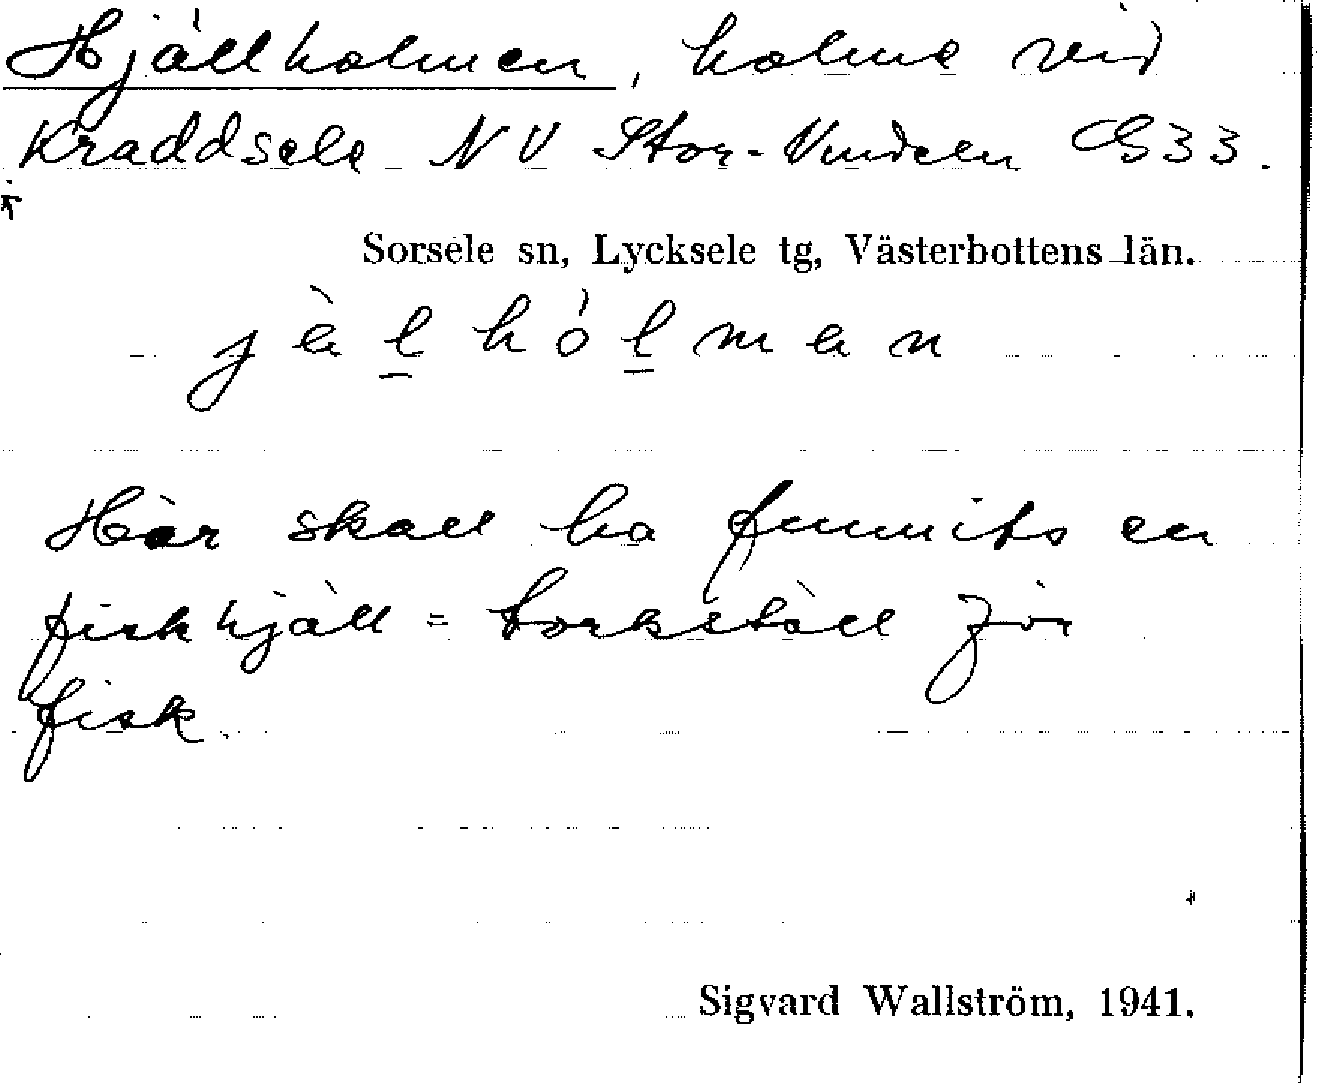 Hjällholmen, holme vid
Kraddsele NV Stor-Vindeln G33.
Sorsele sn, Lycksele tg, Västerbottens län.
jèlhólmen
Här skall ha funnits en
fiskhjäll = torkställ för
fisk.
Sigvard Wallström, 1941.